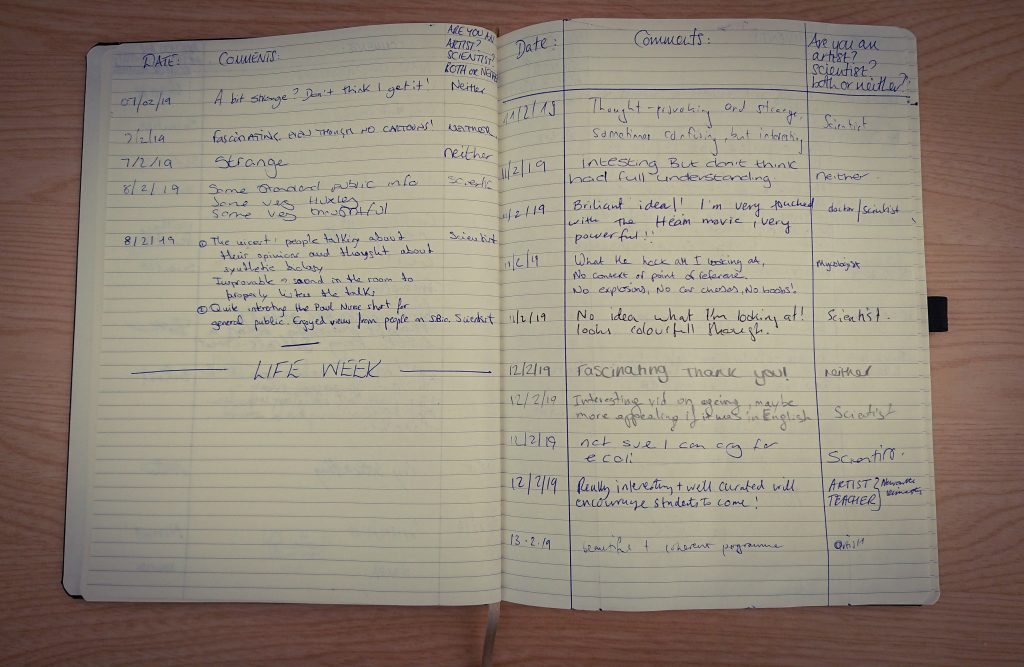 DATE: COMMENTS: ARE YOU AN
ARTIST?
SCIENTIST?
BOTH OR NEITHER
07/02/19 A bit strange? Don't think I get it! Neither
7/2/19 FASCINATING, EVEN THOUGH NO CARTOONS! NEITHER
7/2/19 Strange neither
8/2/19 Some standard public info
Some very Huxley
Some very thoughtful
8/2/19 ① The nicest: people talking about Scientist
their opinion and thought about
synthetic biology
Improvable → sound in the room to
properly listen the talks
② Quite interesting the Paul Nurse short for
general public. Enjoyed view from people on SBio. Scientist
LIFE WEEK
Date: Comments: Are you an
artist?
scientist?
both or neither?
11/2/19 Thought-provoking and strange, Scientist
sometimes confusing, but interesting
11/2/19 Intesting But don't think
had full understanding. neither.
11/2/19 Briliant idea!! I'm very touched doctor/scientist
with the movie, very
powerful!!
What the heck am I looking at, Mycologist
No context or point of reference.
No explosions, No car chases, No boobs!
11/2/19 No idea what I'm looking at! Scientist.
looks colourfull though.
12/2/19 Fascinating thank you! neither
12/2/19 Interesting vid on ageing, maybe
more appealing if it was in English Scientist
12/2/19 not sure I can cry for
ecoli Scientist.
12/2/19 Really interesting + well curated will ARTIST
encourage students to come! TEACHER
13.2.19 beautiful + coherent programme artist